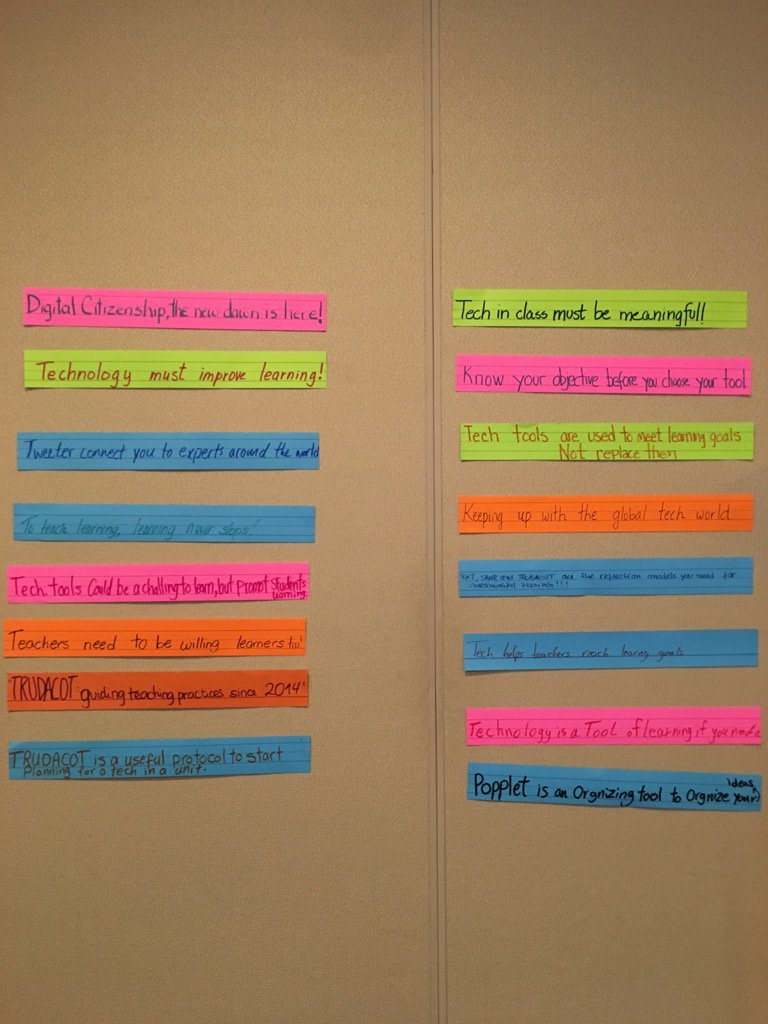 Digital Citizenship, the new dawn is here!
Technology must improve learning!
Tweeter connect you to experts around the world
To teach learning, learning never stops!
Tech tools Could be a challing to learn, but promot Students
Learning.
Teachers need to be willing learners too!
"TRUDACOT: guiding teaching practices since 2014"
TRUDACOT is a useful protocol to start
Planning for a tech in a unit.
Tech in class must be meaningful!
Know your objective before you choose your tool.
Tech tools are used to meet learning goals
Not replace them
Keeping up with the global tech world
RAT, SAMR and TRUDACOT are the reflection models you need for
meaningful
Tech helps teachers reach learng goals
Technology is a Tool of learning if you need
Popplet is an Orgnizing tool to Orgnize your
ideas